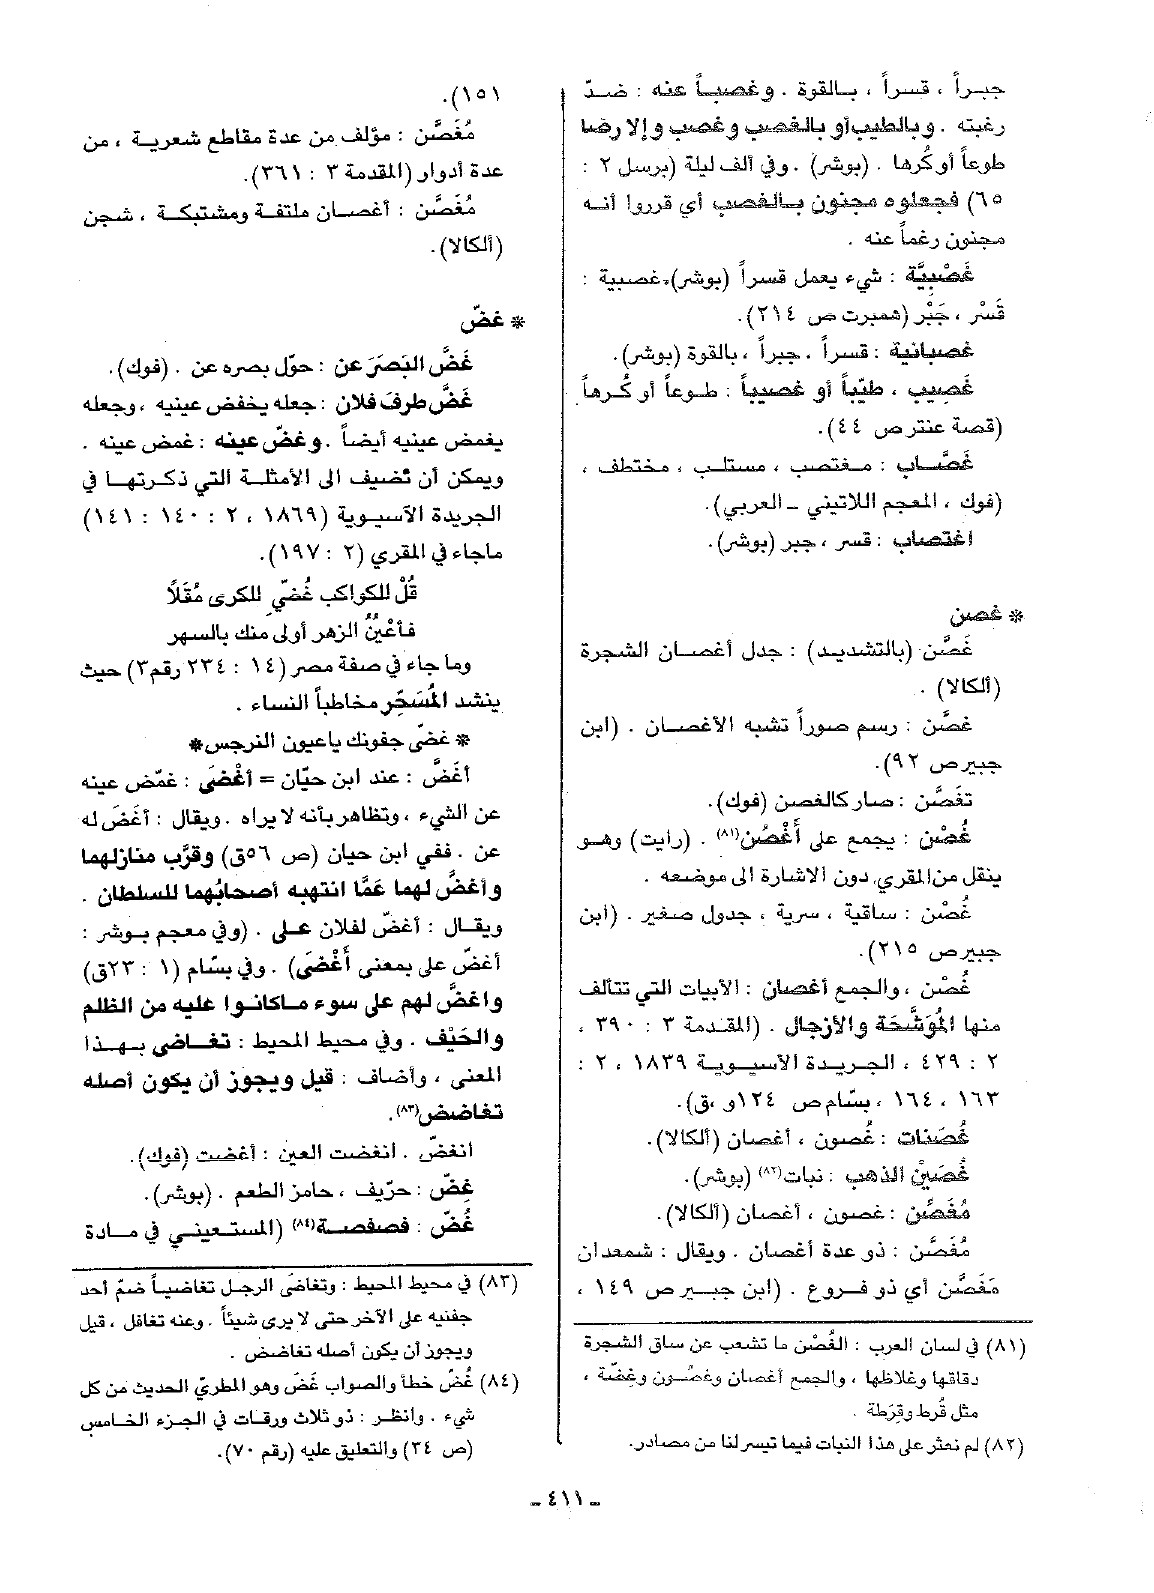 جبراً ، قسراً ، بالقوة . وغصباً عنه : ضدّ
رغبته . وبالطيب أو بالغصب وغصب وإلا رضا
طوعاً أو كُرها . (بوشر) . وفي ألف ليلة (برسل ٢ :
٦٥) فجعلوه مجنون بالغصب أي قرروا أنه
مجنون رغماً عنه .
غَصْبِيَّة : شيء يعمل قسراً (بوشر)، غصبية :
قَسْر ، جَبْر (همبرت ص ٢١٤).
غصبانية : قسراً . جبراً ، بالقوة (بوشر).
غَصِيب ، طيّباً أو غصيباً : طوعاً أو كُرهاً
(قصة عنتر ص ٤٤).
غَصَّاب : مغتصب ، مستلب ، مختطف ،
(فوك ، المعجم اللاتيني ـ العربي).
اغتصاب : قسر ، جبر (بوشر).
* غصن
غَصَّن (بالتشديد) : جدل أغصان الشجرة
(ألكالا) .
غصَّن : رسم صوراً تشبه الأغصان . (ابن
جبير ص ٩٢).
تغَصَّن : صار كالغصن (فوك).
غُصْن : يجمع على أَغْصُن(٨١) . (رايت) وهو
ينقل من المقري، دون الاشارة الى موضعه .
غُصْن : ساقية ، سرية ، جدول صغير . (ابن
جبير ص ٢١٥).
غُصْن ، والجمع أغصان : الأبيات التي تتألف
منها المُوَشَّحَة والأزجال . (المقدمة ٣ : ٣٩٠ ،
٢ : ٤٢٩ ، الجريدة الآسيوية ١٨٣٩ ، ٢ :
١٦٣ ، ١٦٤ ، بسّام ص ١٢٤و ،ق).
غُصَنات : غُصون ، أغصان (ألكالا).
غُصَيْن الذهب : نبات(٨٢) (بوشر).
مُغَصَّن : غصون ، أغصان (ألكالا).
مُغَصَّن : ذو عدة أغصان . ويقال : شمعدان
مَغَصَّن أي ذو فروع . (ابن جبير ص ١٤٩ ،
(٨١) في لسان العرب : الغُصْن ما تشعب عن ساق الشجرة
دقاقها وغلاظها ، والجمع أغصان وغصُون وغصَنة ،
مثل قُرط وقِرَطة .
(٨٢) لم نعثر على هذا النبات فيما تيسر لنا من مصادر.
١٥١).
مُغَصَّن : مؤلف من عدة مقاطع شعرية ، من
عدة أدوار (المقدمة ٣ : ٣٦١).
مُغَصَّن : أغصان ملتفة ومشتبكة ، شجن
(ألكالا).
* غضّ
غَضَّ البَصَرَ عن : حوّل بصره عن . (فوك).
غَضَّ طرفَ فلان : جعله يخفض عينيه ، وجعله
يغمض عينيه أيضاً . وغضّ عينه : غمض عينه .
ويمكن أن نضيف الى الأمثلة التي ذكرتها في
الجريدة الآسيوية (١٨٦٩ ، ٢ : ١٤٠ : ١٤١)
ماجاء في المقري (٢ : ١٩٧).
قُلْ للكواكب غُضّي للكرى مُقَلاً
فأعْيُنُ الزهر أولى منك بالسهر
وما جاء في صفة مصر (١٤ : ٢٣٤ رقم٣) حيث
ينشد المُسَحِّر مخاطباً النساء .
* غضى جفونك ياعيون النرجس*
أغَضَّ : عند ابن حيّان = أغْضَى : غمّض عينه
عن الشيء ، وتظاهر بأنه لا يراه . ويقال : أغَضَ له
عن . ففي ابن حيان (ص ٥٦ق) وقرَّب منازلهما
وأغضَّ لهما عَمَّا انتهبه أصحابُهما للسلطان .
ويقال : أغضّ لفلان على . (وفي معجم بوشر :
أغضّ على بمعنى أَغْضَى) . وفي بسّام (١ : ٢٣ق)
واغضَّ لهم على سوء ماكانوا عليه من الظلم
والحَيْف . وفي محيط المحيط : تغاضى بهذا
المعنى ، وأضاف : قيل ويجوز أن يكون أصله
تغاضض(٨٣).
انغضّ . انغضت العين : أغضت (فوك).
غِضّ : حرّيف ، حامز الطعم . (بوشر).
غُضّ : فصفصة(٨٤) (المستعيني في مادة
(٨٣) في محيط المحيط : وتغاضَى الرجل تغاضياً ضمّ أحد
جفنيه على الآخر حتى لا يرى شيئاً . وعنه تغافل ، قيل
ويجوز أن يكون أصله تغاضض .
(٨٤) غُضّ خطأ والصواب غَضّ وهو الطريّ الحديث من كل
شيء . وأنظر : ذو ثلاث ورقات في الجزء الخامس
(ص ٣٤) والتعليق عليه (رقم ٧٠).
ـ ٤١١ ـ